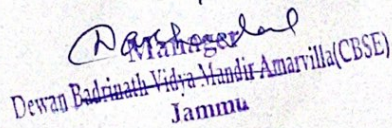 Manager
Dewan Badrinath Vidya Mandir Amarvilla(CBSE)
Jammu